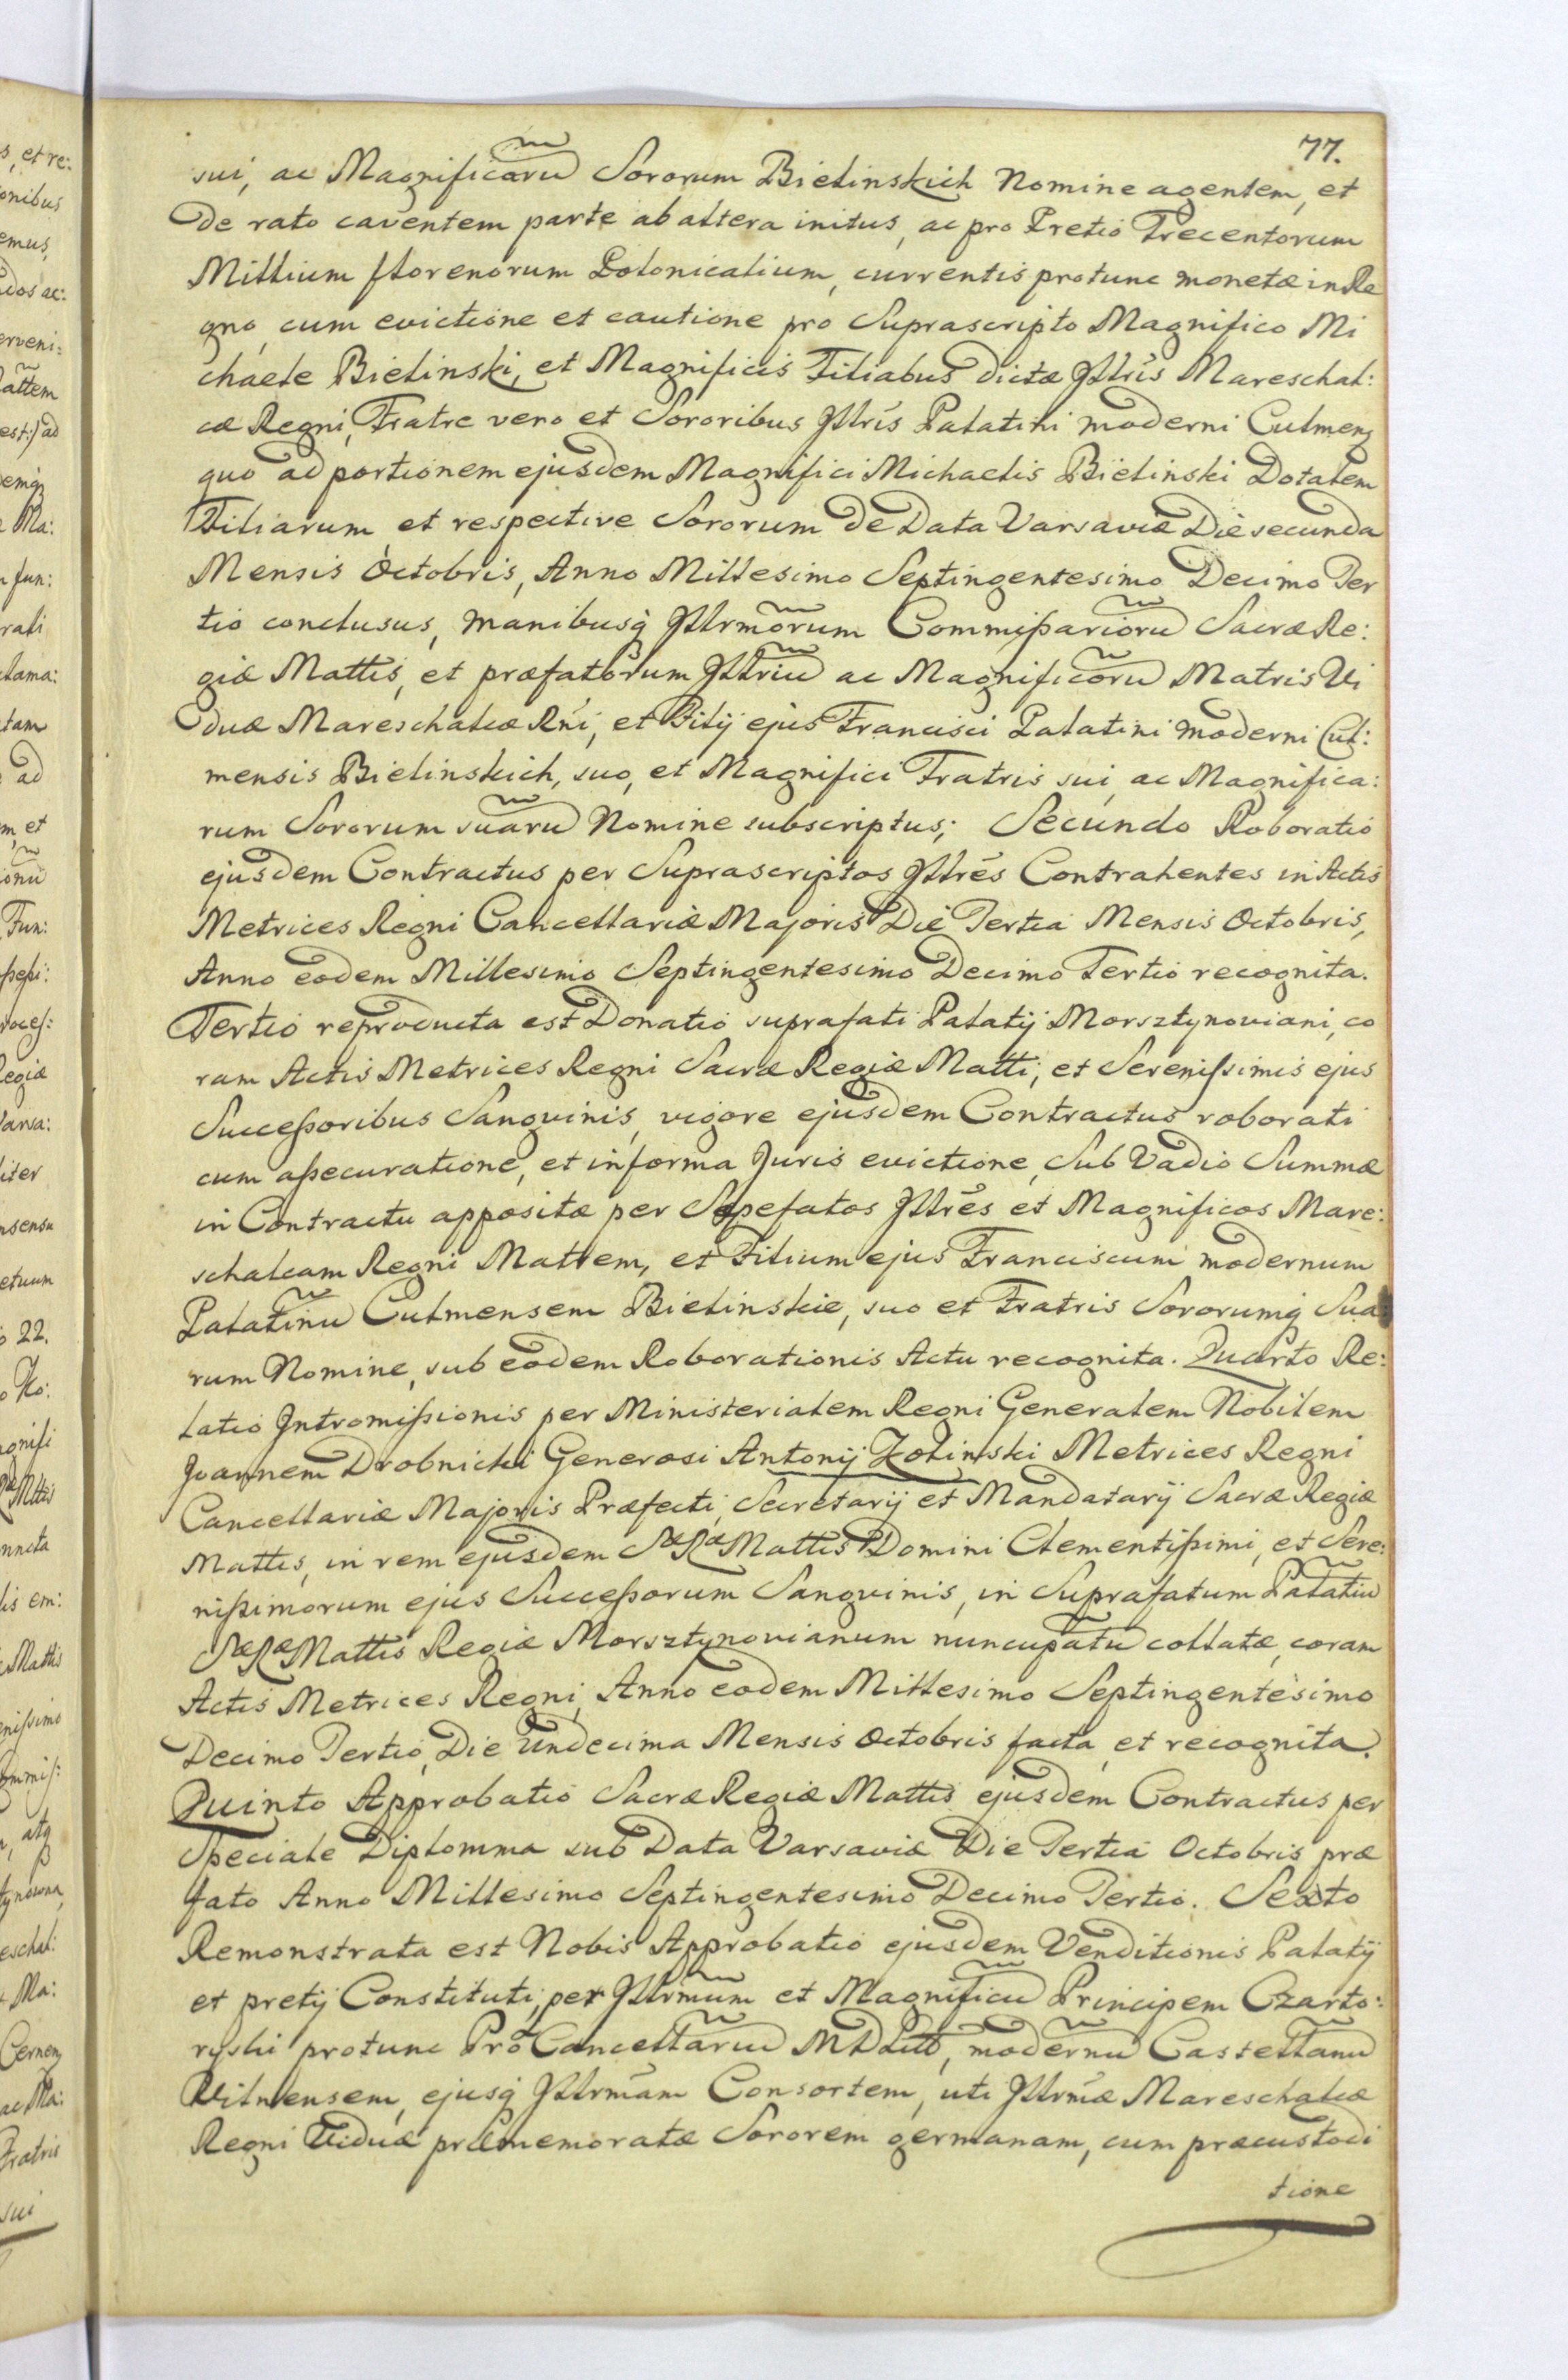 77.
sui, ac Magnificarũ Sororum Bielinskich Nomine agentem, et
de rato caventem parte ab altera initus, ac pro Pretio Trecentorum
Millium florenorum Polonicalium, currentis protunc monetæ in Re
gno, cum evictione et cautione pro Suprascripto Magnifico Mi
chaele Bielinski, et Magnificis Filiabus dictæ Jllris Mareschal:
cæ Regni, Fratre vero et Sororibus Jllris Palatini moderni Culmenς
quo ad portionem ejusdem Magnifici Michaelis Bielinski Dotalem
Filiarum et respective Sororum de Data Varsaviæ Die secunda
Mensis Octobris, Anno Millesimo Septingentesimo Decimo Ter
tio conclusus, manibusq Jllrmõrum Commißariorũ Sacræ Re:
giæ Mattis, et præfatorum Jllriũ ac Magnificorũ Matris Vi
duæ Mareschalcæ Rni, et Filij ejus Francisci Palatini moderni Cul:
mensis Bielinskich, suo, et Magnifici Fratris sui, ac Magnifica:
rum Sororum suarũ Nomine subscriptus; Secundo Roboratio
ejusdem Contractus per Suprascriptos Jllres Contrahentes in Actis
Metrices Regni Cancellariæ Majoris Die Tertia Mensis Octobris,
Anno eodem Millesimo Septingentesimo Decimo Tertio recognita.
Tertio reproducta est Donatio suprafati Palatij Morsztynoviani, co
ram Actis Metrices Regni Sacræ Regiæ Matti, et Serenissimis ejus
Succeßoribus Sangvinis, vigore ejusdem Contractus roborati
cum aßecuratione, et in forma Juris evictione, Sub Vadio Summæ
in Contractu appositæ per Sæpefatos Jllres et Magnificos Mare:
schalcam Regni Matrem, et Filium ejus Franciscum modernum
Palatinũ Culmensem Bielinskie, suo et Fratris Sororumq Sua
rum Nomine, sub eodem Roborationis Actu recognita. Quarto Re:
latio Jntromißionis per Ministerialem Regni Generalem Nobilem
Joannem Drobnicki Generosi Antonij Zolinski Metrices Regni
Cancellariæ Majoris Præfecti, Secretarij et Mandatarij Sacræ Regiæ
Mattis, in rem ejusdem SæRæ Mattis Domini Clementißimi, et Sere:
nißimorum ejus Succeßorum Sangvinis, in Suprafatum Palatiũ
SæRæ Mattis Regiæ Morsztynovianum nuncupatũ collatæ, coram
Actis Metrices Regni, Anno eodem Millesimo Septingentesimo
Decimo Tertio, Die Undecima Mensis Octobris facta, et recognita.
Quinto Approbatio Sacræ Regiæ Mattis ejusdem Contractus per
Speciale Diplomma sub Data Varsaviæ Die Tertia Octobris præ
fato Anno Millesimo Septingentesimo Decimo Tertio. Sexto
Remonstrata est Nobis Approbatio ejusdem Venditionis Palatij
et pretij Constituti, per Jllrmum et Magnificũ Principem Czarto:
ryski protunc Pro Cancellariũ MDLitt, modernũ Castellanũ
Vilnensem, ejusq Jllrmam Consortem, uti Jllrmæ Mareschalcæ
Regni Viduæ præmemoratæ Sororem germanam, cum præcustodi
tione